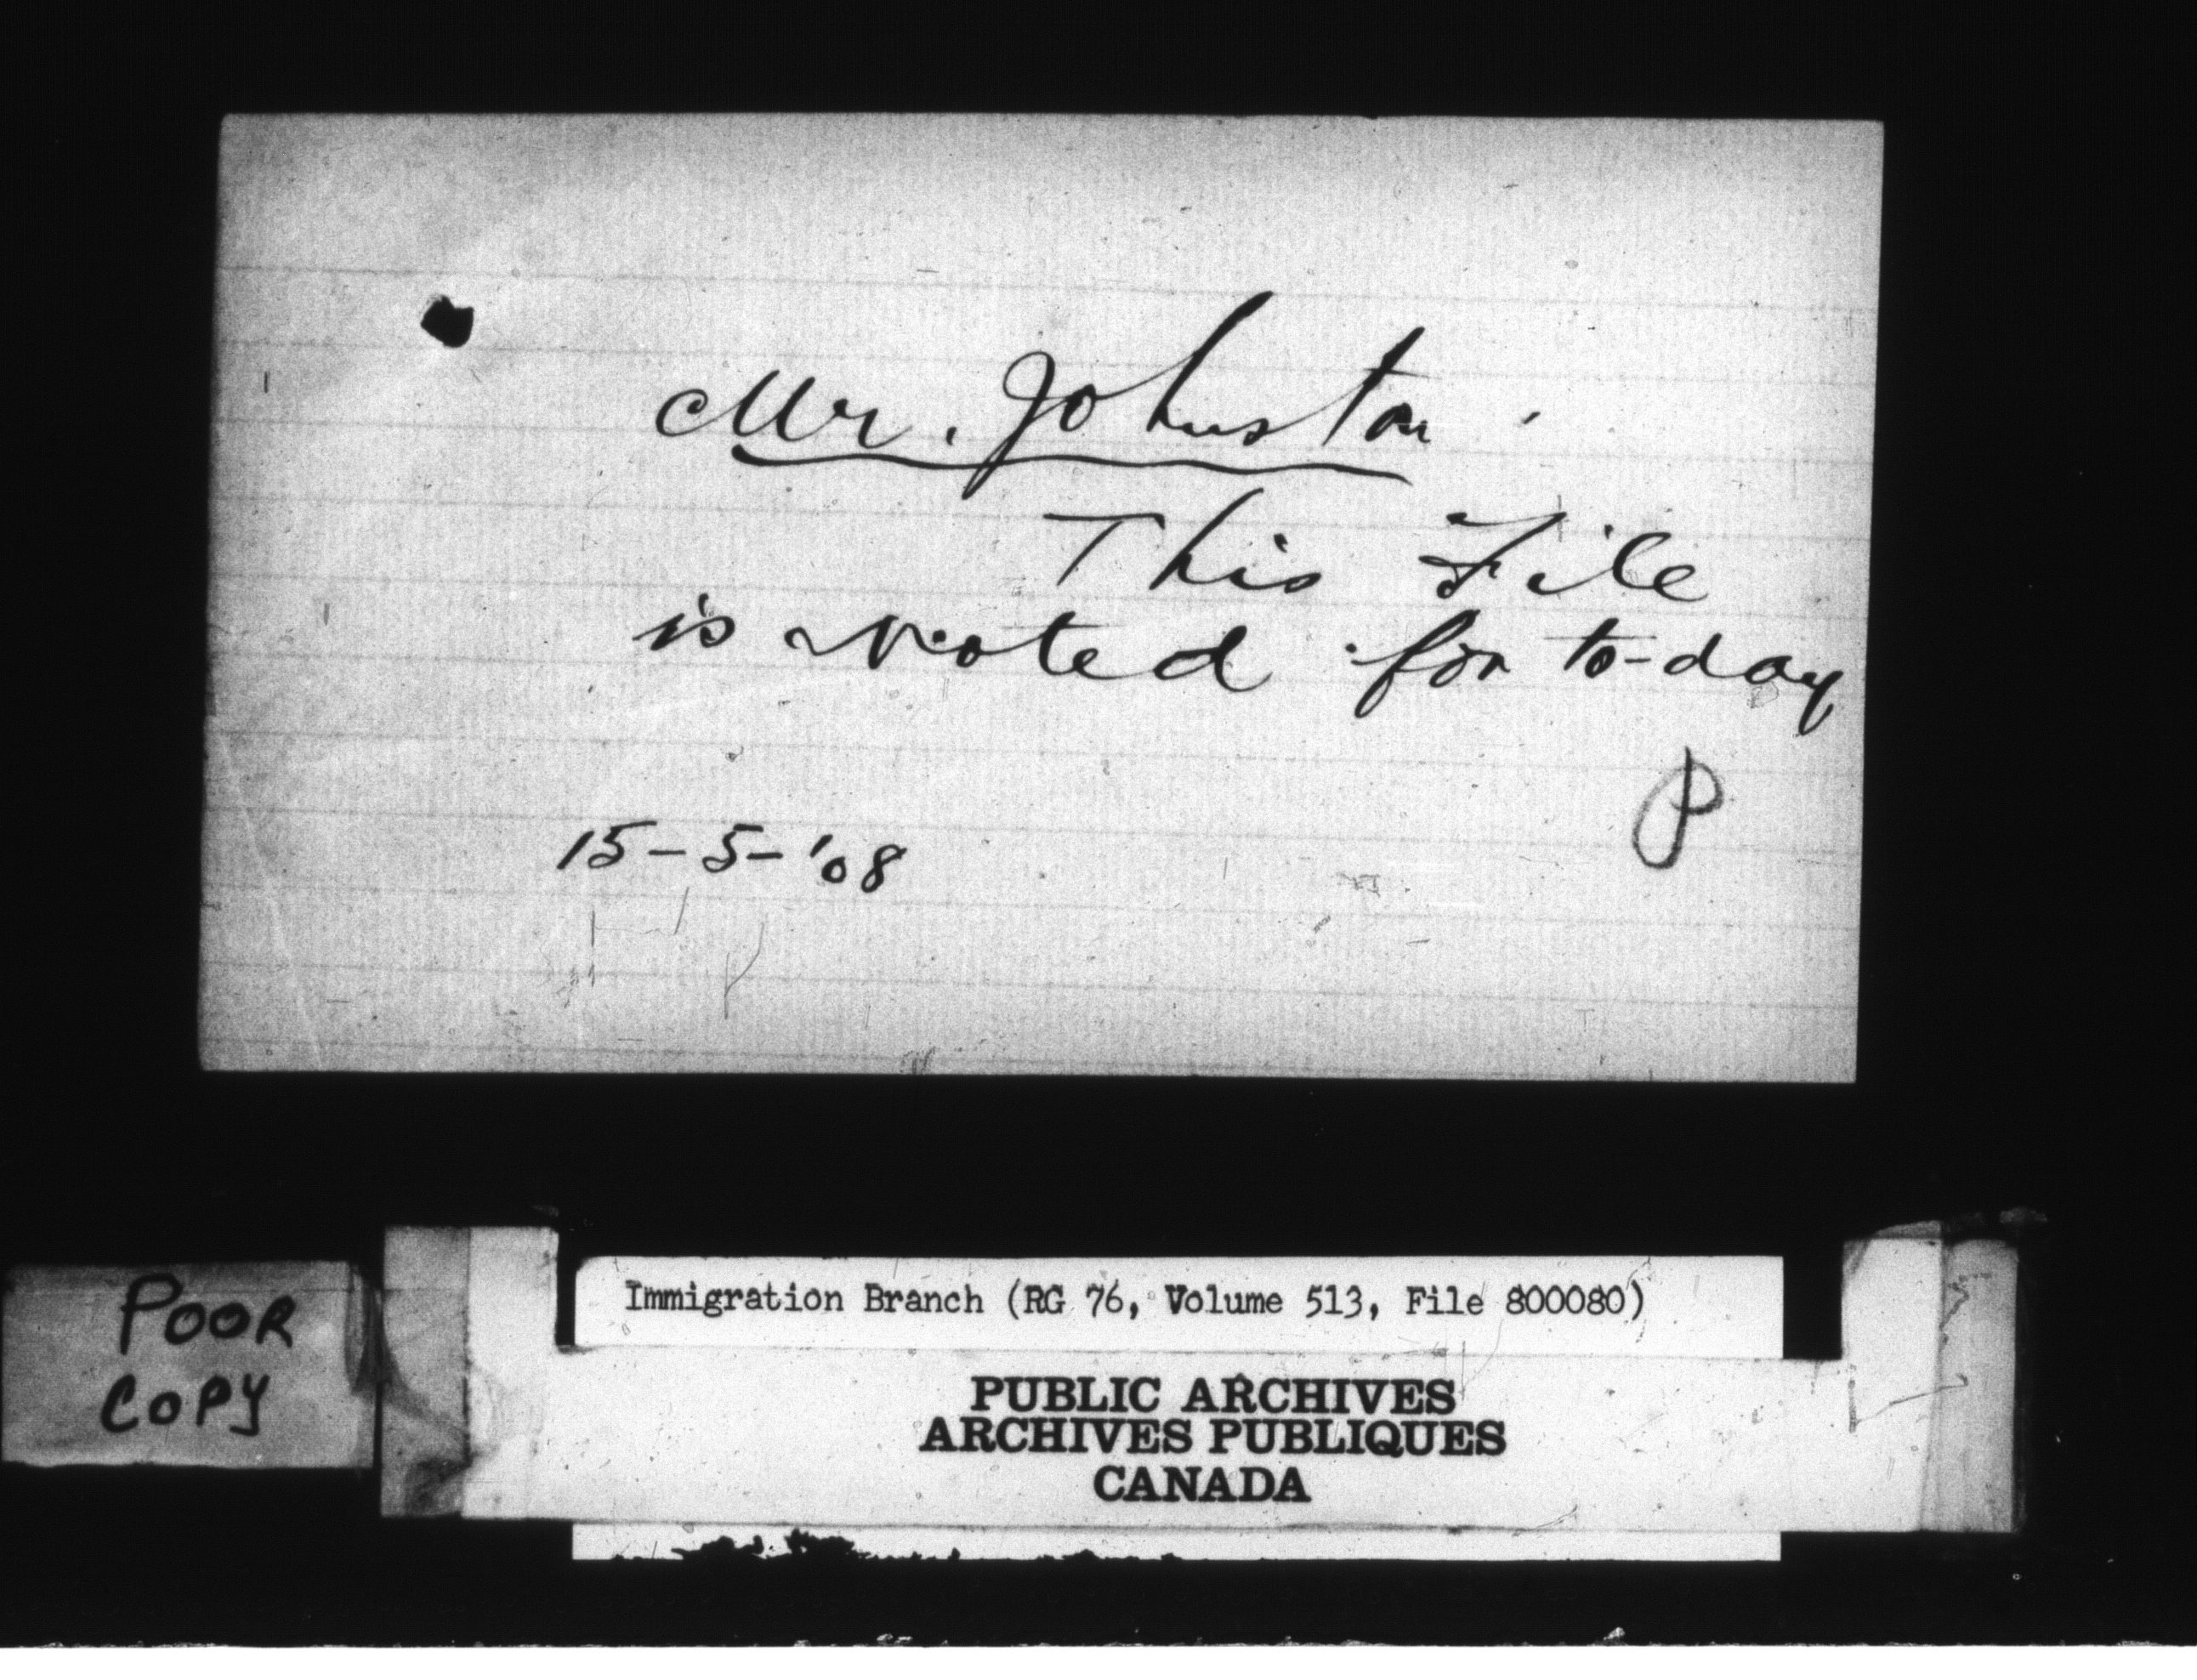 Mr. Johnston.
This File
is noted for to-day
P
15-5-'08
POOR
COPY
Immigration Branch (RG 76, Volume 513, File 800080)
PUBLIC ARCHIVES
ARCHIVES PUBLIQUES
CANADA